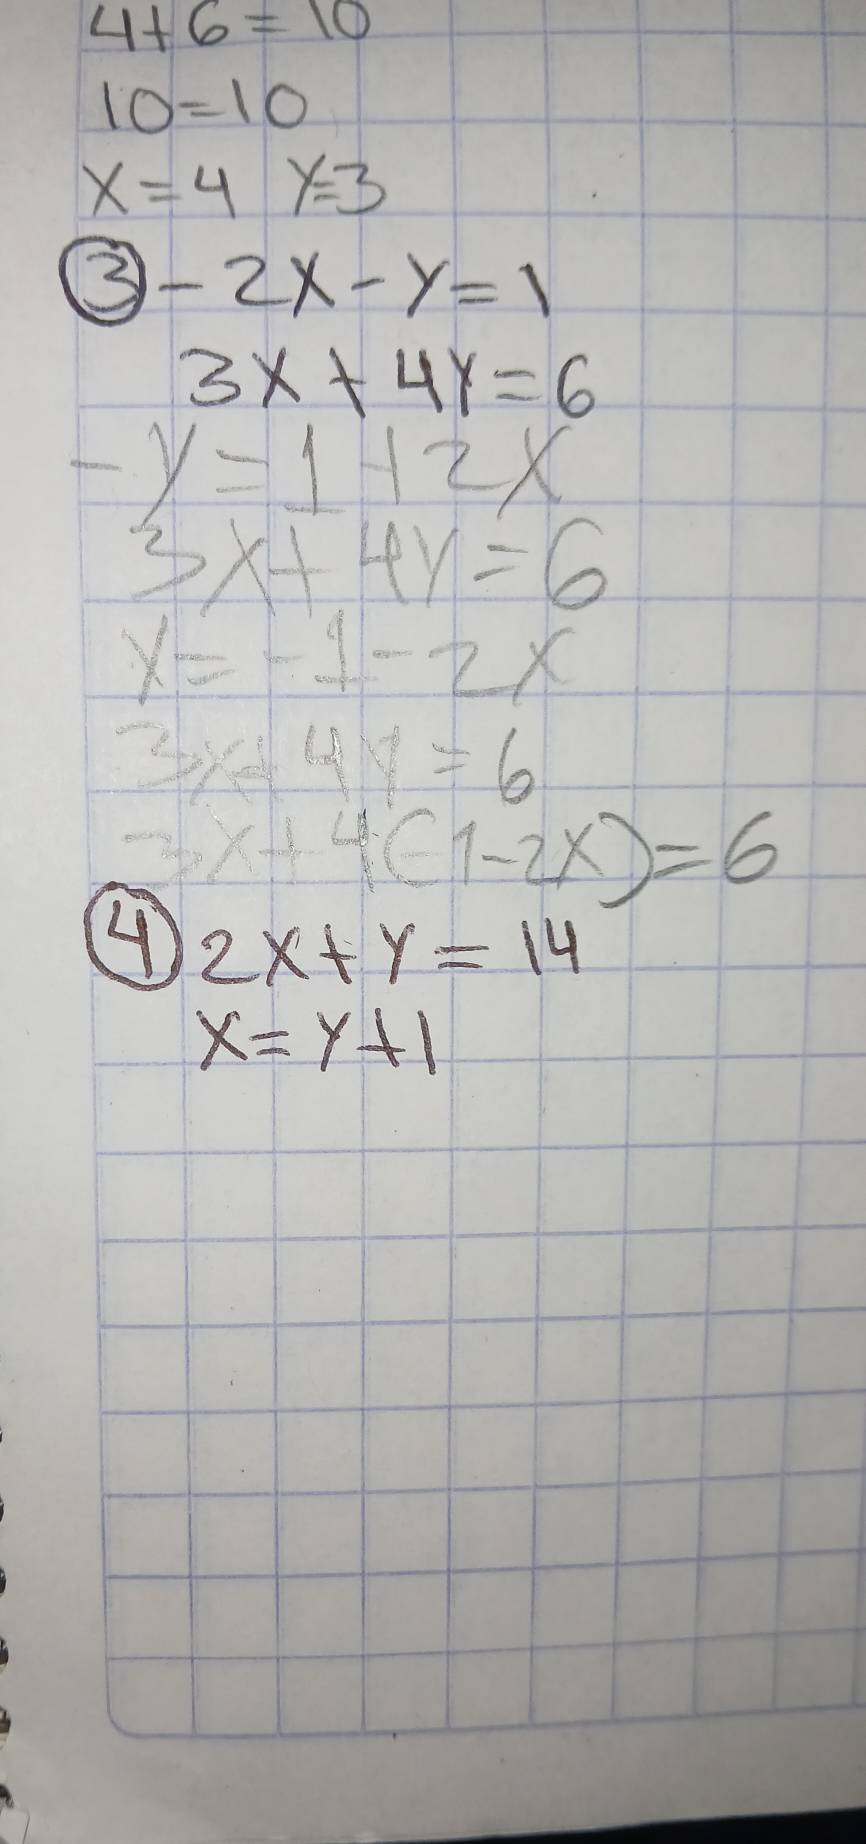 4+6=10
10=10
x=4 y=3
③-2x-y=1
3x+4y=6
-y=1+2x
3x+4y=6
y=-1-2x
3x+4y=6
3x+4(-1-2x)=6
④2x+y=14
x=y+1